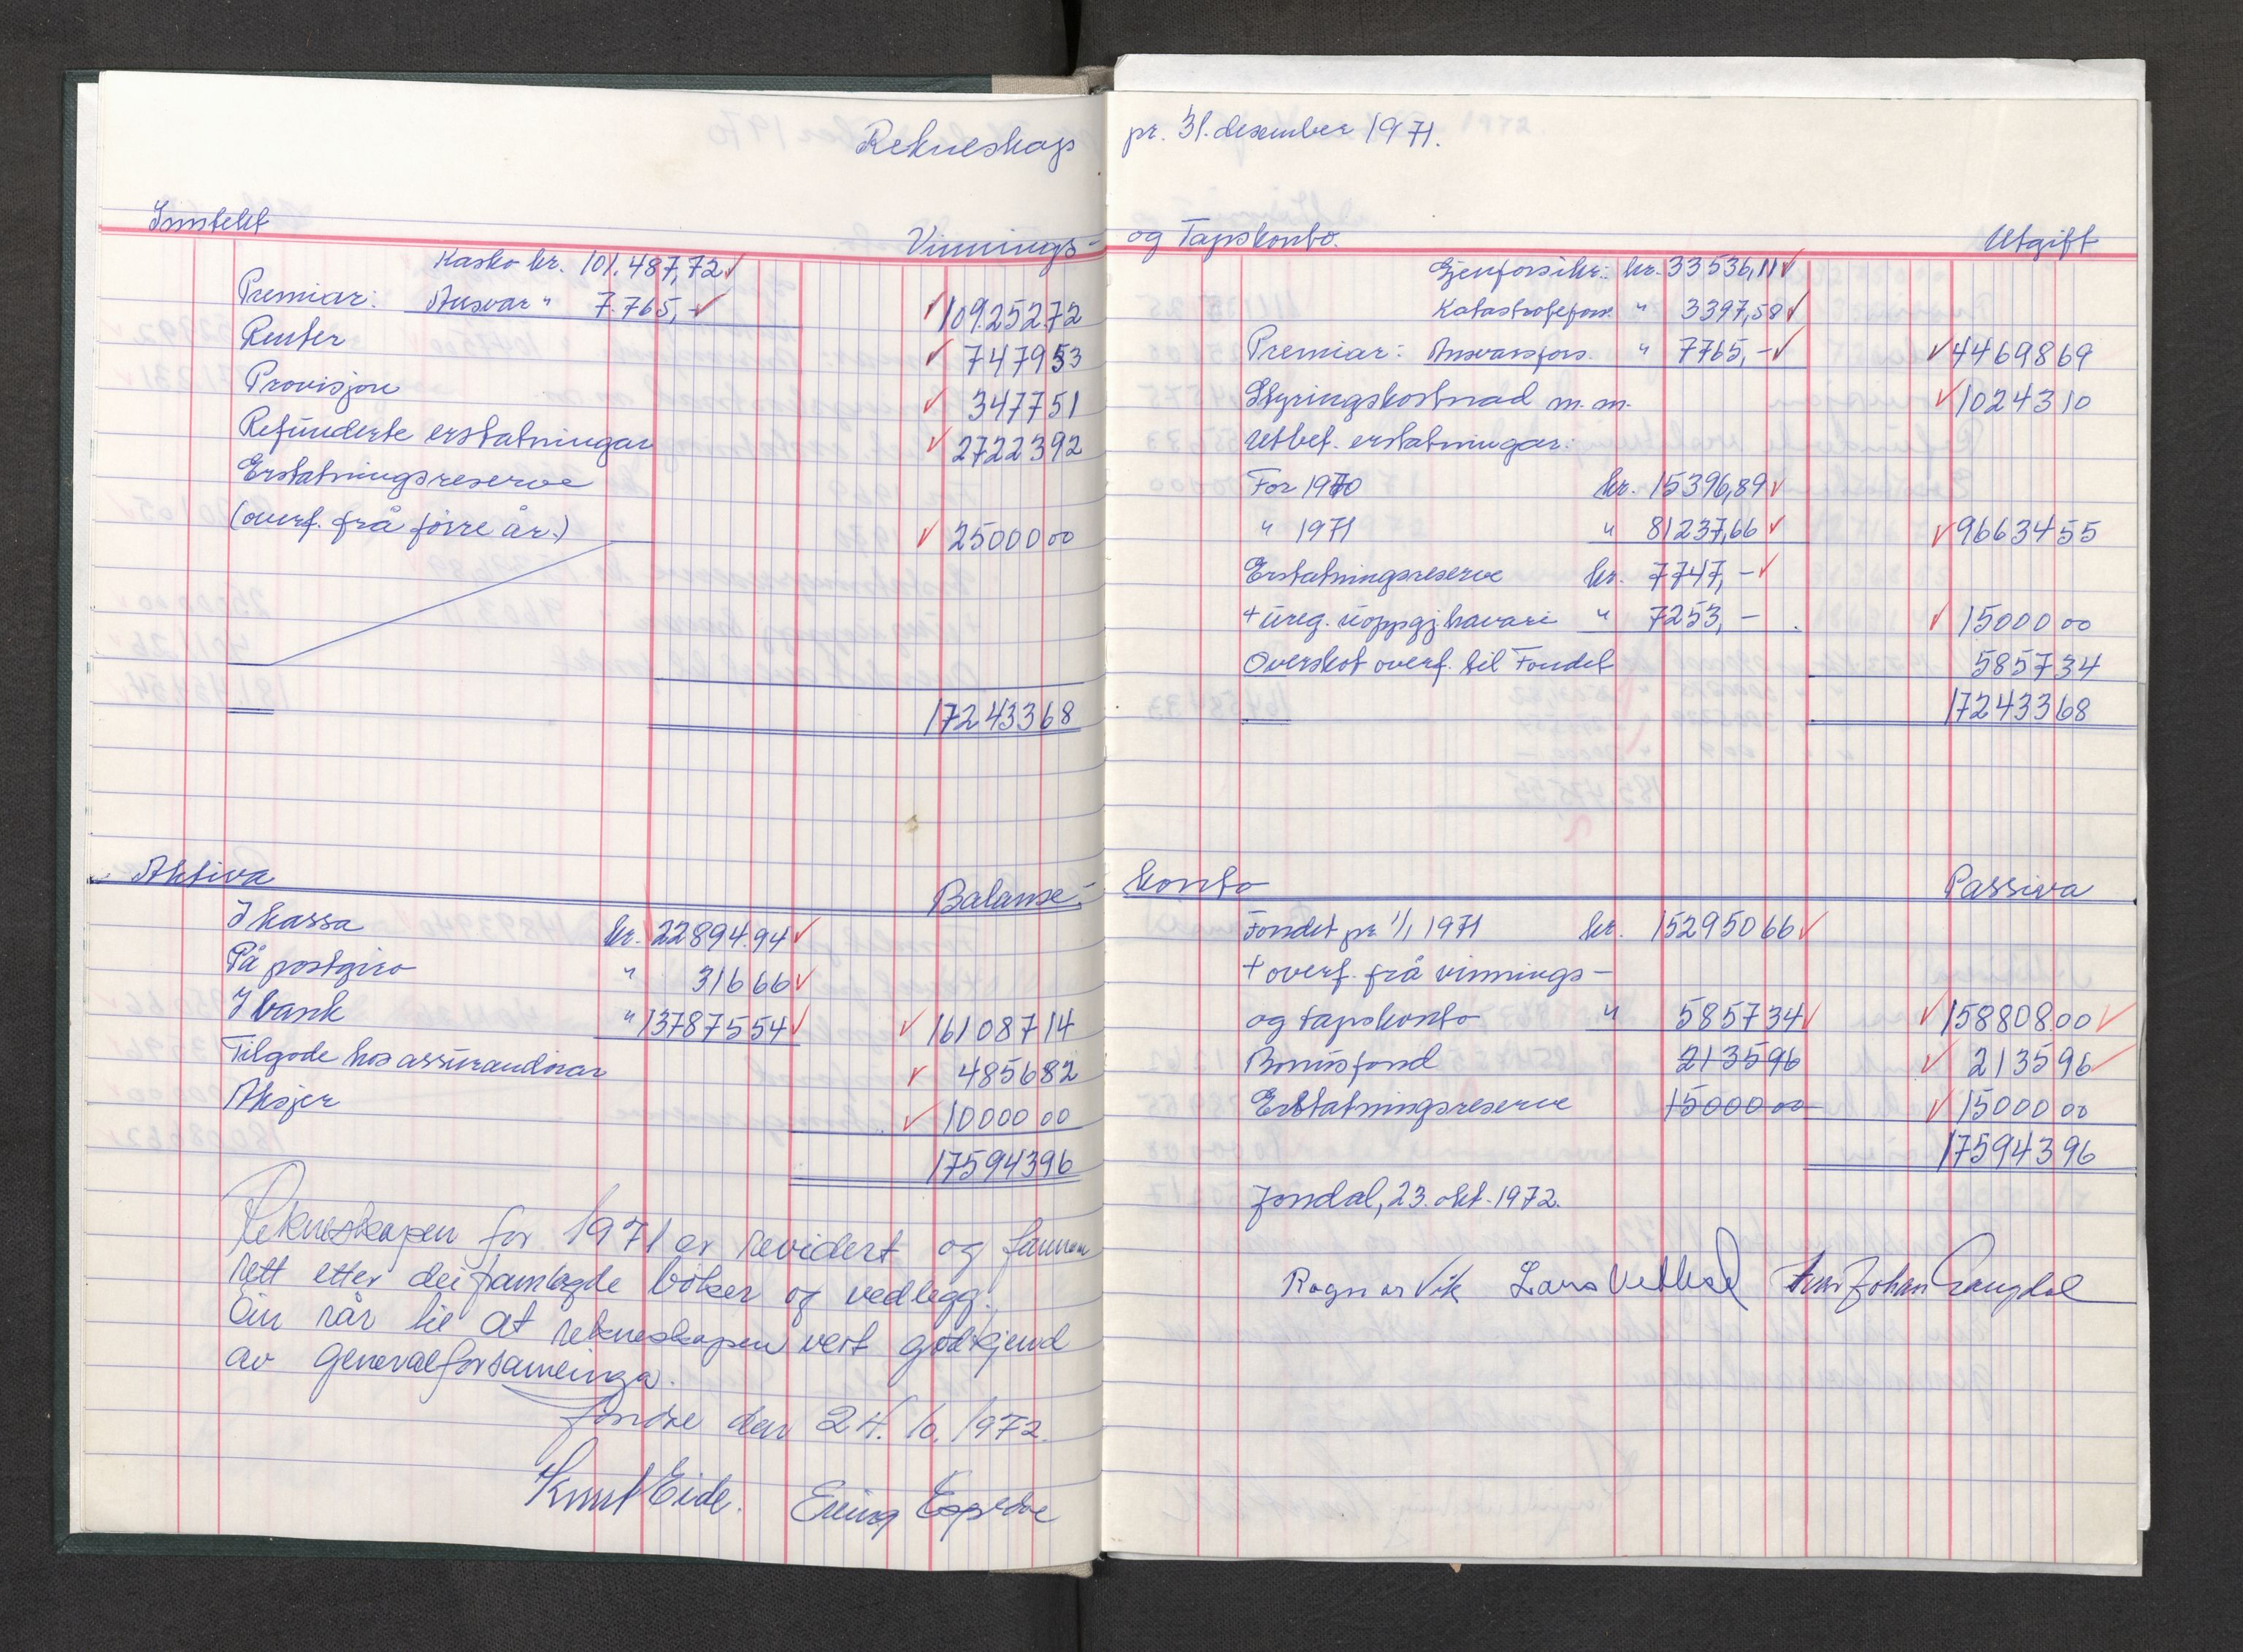 Rekneskap
Inntekt Vinnings-
Kasko kr. 101.487,72
Premiar: Ansvar " 7.765,- 109.252 72
Renter 7479 53
Provisjon 3477 51
Refunderte erstatningar 27223 92
Erstatningsreserve
(overf. frå førre år.) 25000 00
172433 68
Aktiva Balanse-
I kassa kr. 22894.94
På postgiro " 316 66
I bank " 137875 54 161087 14
Tilgode hos assurandørar 4856 82
Aksjer 10000 00
175943 96
Rekneskapen for 1971 er revidert og funnen
rett etter dei framlagde bøker og vedlegg.
Ein rår til at rekneskapen vert godkjend
av generalforsamlinga.
den 24.10.1972.
Knut Eide. Erling Espeland
pr. 31. desember 1971.
og Tapskonto. Utgift
Gjenforsikr.: kr. 33536,11
Katastrofefors. " 3397,58
Premiar: Ansvarsfors. " 7765,- 44698 69
Styringskostnad m.m. 10243 10
Utbet. erstatningar:
For 1970 kr. 15396,89
" 1971 " 81237,66 96634 55
Erstatningsreserve kr. 7747,-
+ ureg. uoppgj. havari " 7253,- 15000 00
Overskot overf. til Fondet 5857 34
172433 68
konto Passiva
Fondet pr. 1/1 1971 kr. 152950 66
+ overf. frå vinnings-
og tapskonto " 5857 34 158808 00
Bonusfond 2135 96 2135 96
Erstatningsreserve 15000 00 15000 00
175943 96
Jondal, 23. okt. 1972.
Ragnar Vik Lars Johan